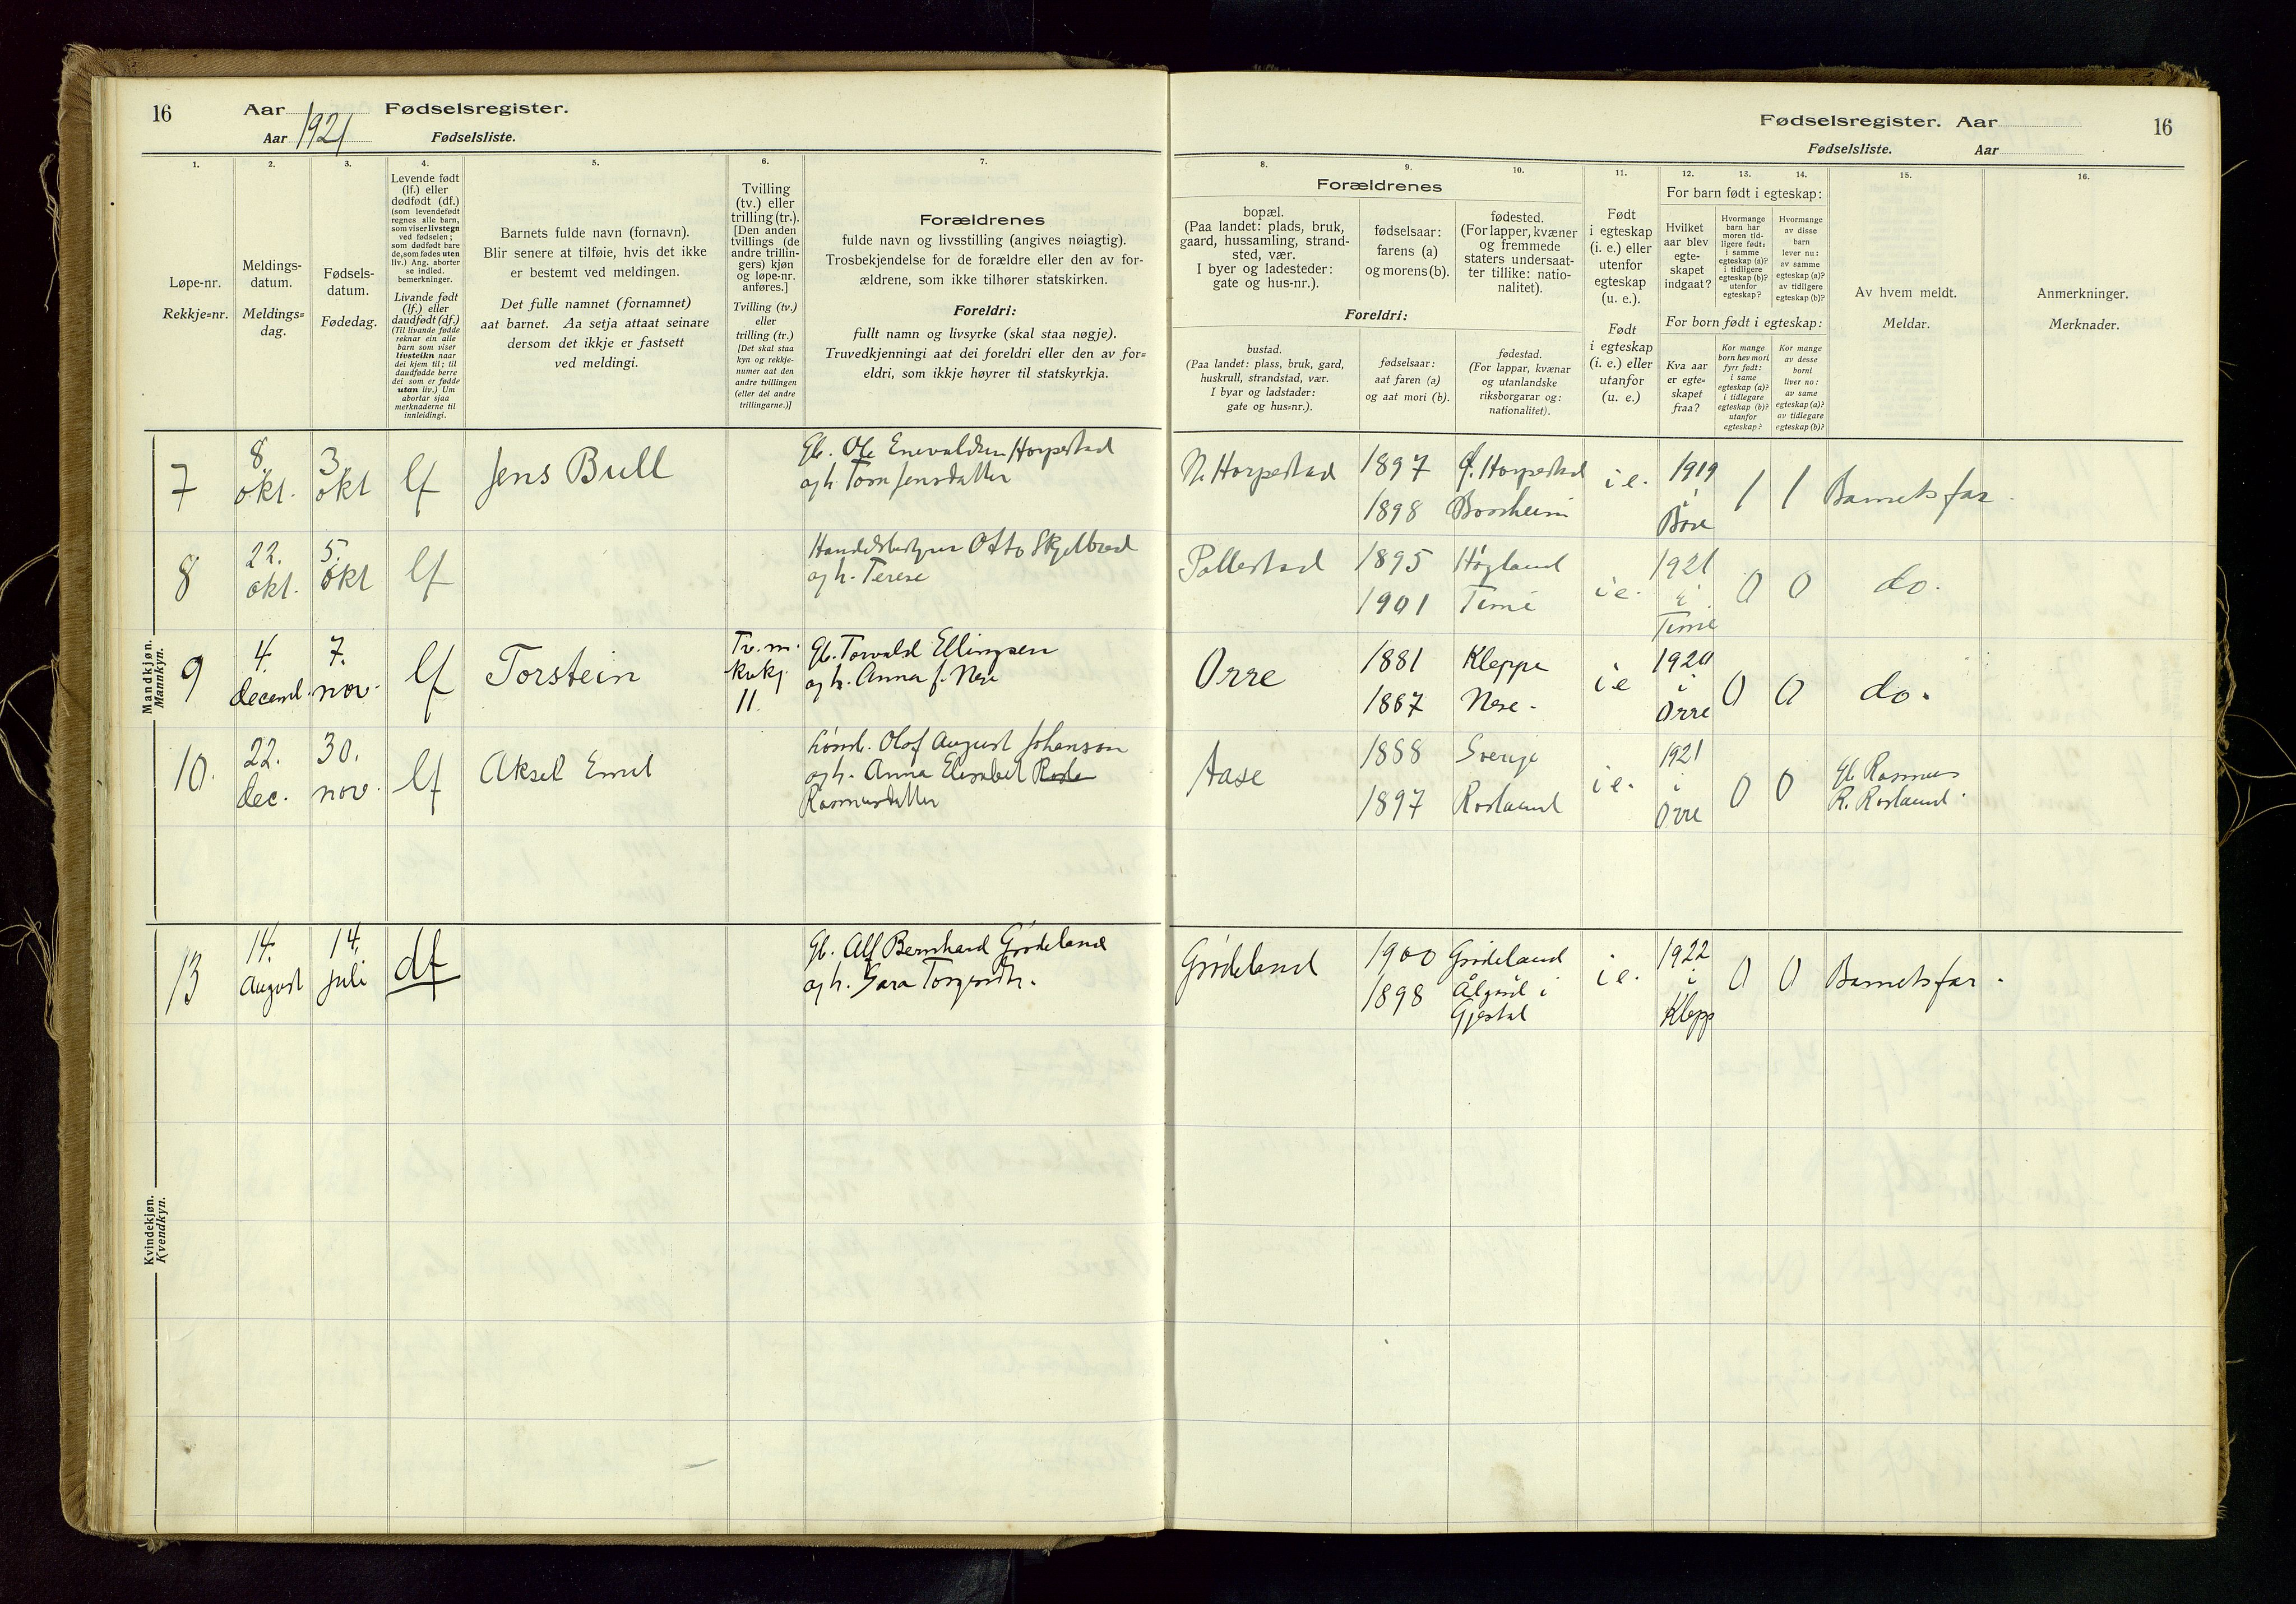 16 Aar Fødselsregister.
Aar 1921 Fødselsliste.
Fødselsregister. Aar 16
Fødselsliste. Aar
1. 2. 3. 4. 5. 6. 7.
8. 9. 10. 11. 12. 13. 14. 15. 16.
Løpe-nr.
Rekkje=nr.
Meldings-
datum.
Meldings=
dag.
Fødsels-
datum.
Fødedag.
Levende født
(lf.) eller
dødfødt (df.)
(som levendefødt
regnes alle barn,
som viser livstegn
ved fødselen;
som dødfødt bare
de, som fødes uten
liv.) Ang. aborter
se indled.
bemerkninger.
Livande født
(lf.) eller
daudfødt (df.)
(Til livande fødde
reknar ein alle
barn som viser
livsteikn naar
dei kjem til; til
daudfødde berre
dei som er fødde
utan liv.) Um
abortar sjaa
merknaderne til
innleidingi.
Barnets fulde navn (fornavn).
Blir senere at tilføie, hvis det ikke
er bestemt ved meldingen.
Det fulle namnet (fornamnet)
aat barnet. Aa setja attaat seinare
dersom det ikkje er fastsett
ved meldingi.
Tvilling
(tv.) eller
trilling (tr.).
[Den anden
tvillings (de
andre trillin-
gers) kjøn
og løpe-nr.
anføres.]
Tvilling (tv.)
eller
trilling (tr.)
[Det skal staa
kyn og rekkje-
numer aat den
andre tvillingen
(eller dei andre
trillingarne.)]
Forældrenes
fulde navn og livsstilling (angives nøiagtig).
Trosbekjendelse for de forældre eller den av for-
ældrene, som ikke tilhører statskirken.
Foreldri:
fullt namn og livsyrke (skal staa nøgje).
Truvedkjenningi aat dei foreldri eller den av for=
eldri, som ikkje høyrer til statskyrkja.
Forældrenes
bopæl.
(Paa landet: plads, bruk,
gaard, hussamling, strand-
sted, vær.
I byer og ladesteder:
gate og hus-nr.).
fødselsaar:
farens (a)
og morens (b).
fødested.
(For lapper, kvæner
og fremmede
staters undersaat-
ter tillike: natio-
nalitet).
Foreldri:
bustad.
(Paa landet: plass, bruk, gard,
huskrull, strandstad, vær.
I byar og ladstader:
gate og hus=nr.).
fødselsaar:
aat faren (a)
og aat mori (b).
fødestad.
(For lappar, kvænar
og utanlandske
riksborgarar og:
nationalitet).
Født
i egteskap
(i. e.) eller
utenfor
egteskap
(u. e.).
Født
i egteskap
(i. e.) eller
utanfor
(u. e.)
For barn født i egteskap:
Hvilket
aar blev
egte-
skapet
indgaat?
Hvormange
barn har
moren tid-
ligere født:
i samme
egteskap (a)?
i tidligere
egteskap (b)?
utenfor
egteskap?
Hvormange
av disse
barn
lever nu:
av samme
egteskap (a)?
av tidligere
egteskap (b)?
For born født i egteskap:
Kva aar
er egte=
skapet
fraa?
Kor mange
born hev mori
fyrr født:
i same
egteskap (a)?
i tidlegare
egteskap (b)?
utanfor
egteskap?
Kor mange
av desse
borni
liver no:
av same
egteskap (a)?
av tidlegare
egteskap (b)?
Av hvem meldt.
Meldar.
Anmerkninger.
Merknader.
Mandkjøn.
Mannkyn.
7 8. okt. 3. okt lf Jens Bull
Gb. Ole Enevaldsen Horpestad
og h. Torn Jensdatter
N. Horpestad 1897 Horpestad i e. 1919 i Bore 1 1 Barnets far.
1898 Boosheim
8 22. okt. 5. okt lf
Handelsbestyrer Otto Skjelbred
og h. Terese
Pollestad 1895 Høyland i e. 1921 i Time 0 0 do.
1901 Time
9 4. decemb. 7. nov. lf Torstein Tv. m. kvkj. 11.
Gb. Torvald Ellingsen
og h. Anna f. Nese
Orre 1881 Kleppe i e 1920 i Orre 0 0 do.
1887 Nese.
10. 22. dec. 30. nov. lf Aksel Emil
Olof August Johanson
og h. Anna Elisabet
Rasmusdatter
Aase 1888 Sverige i e. 1921 i Orre 0 0 Gb Rasmus
1897 Rosland R. Rosland.
Kvindekjøn.
Kvendkyn.
13 14. august 14. juli df
Gb. Alf Bernhard Grødeland
og h. Sara Torgersdtr.
Grødeland 1900 Grødeland i e. 1922 i Klepp 0 0 Barnets far.
1898 Ålgård i
Gjestal